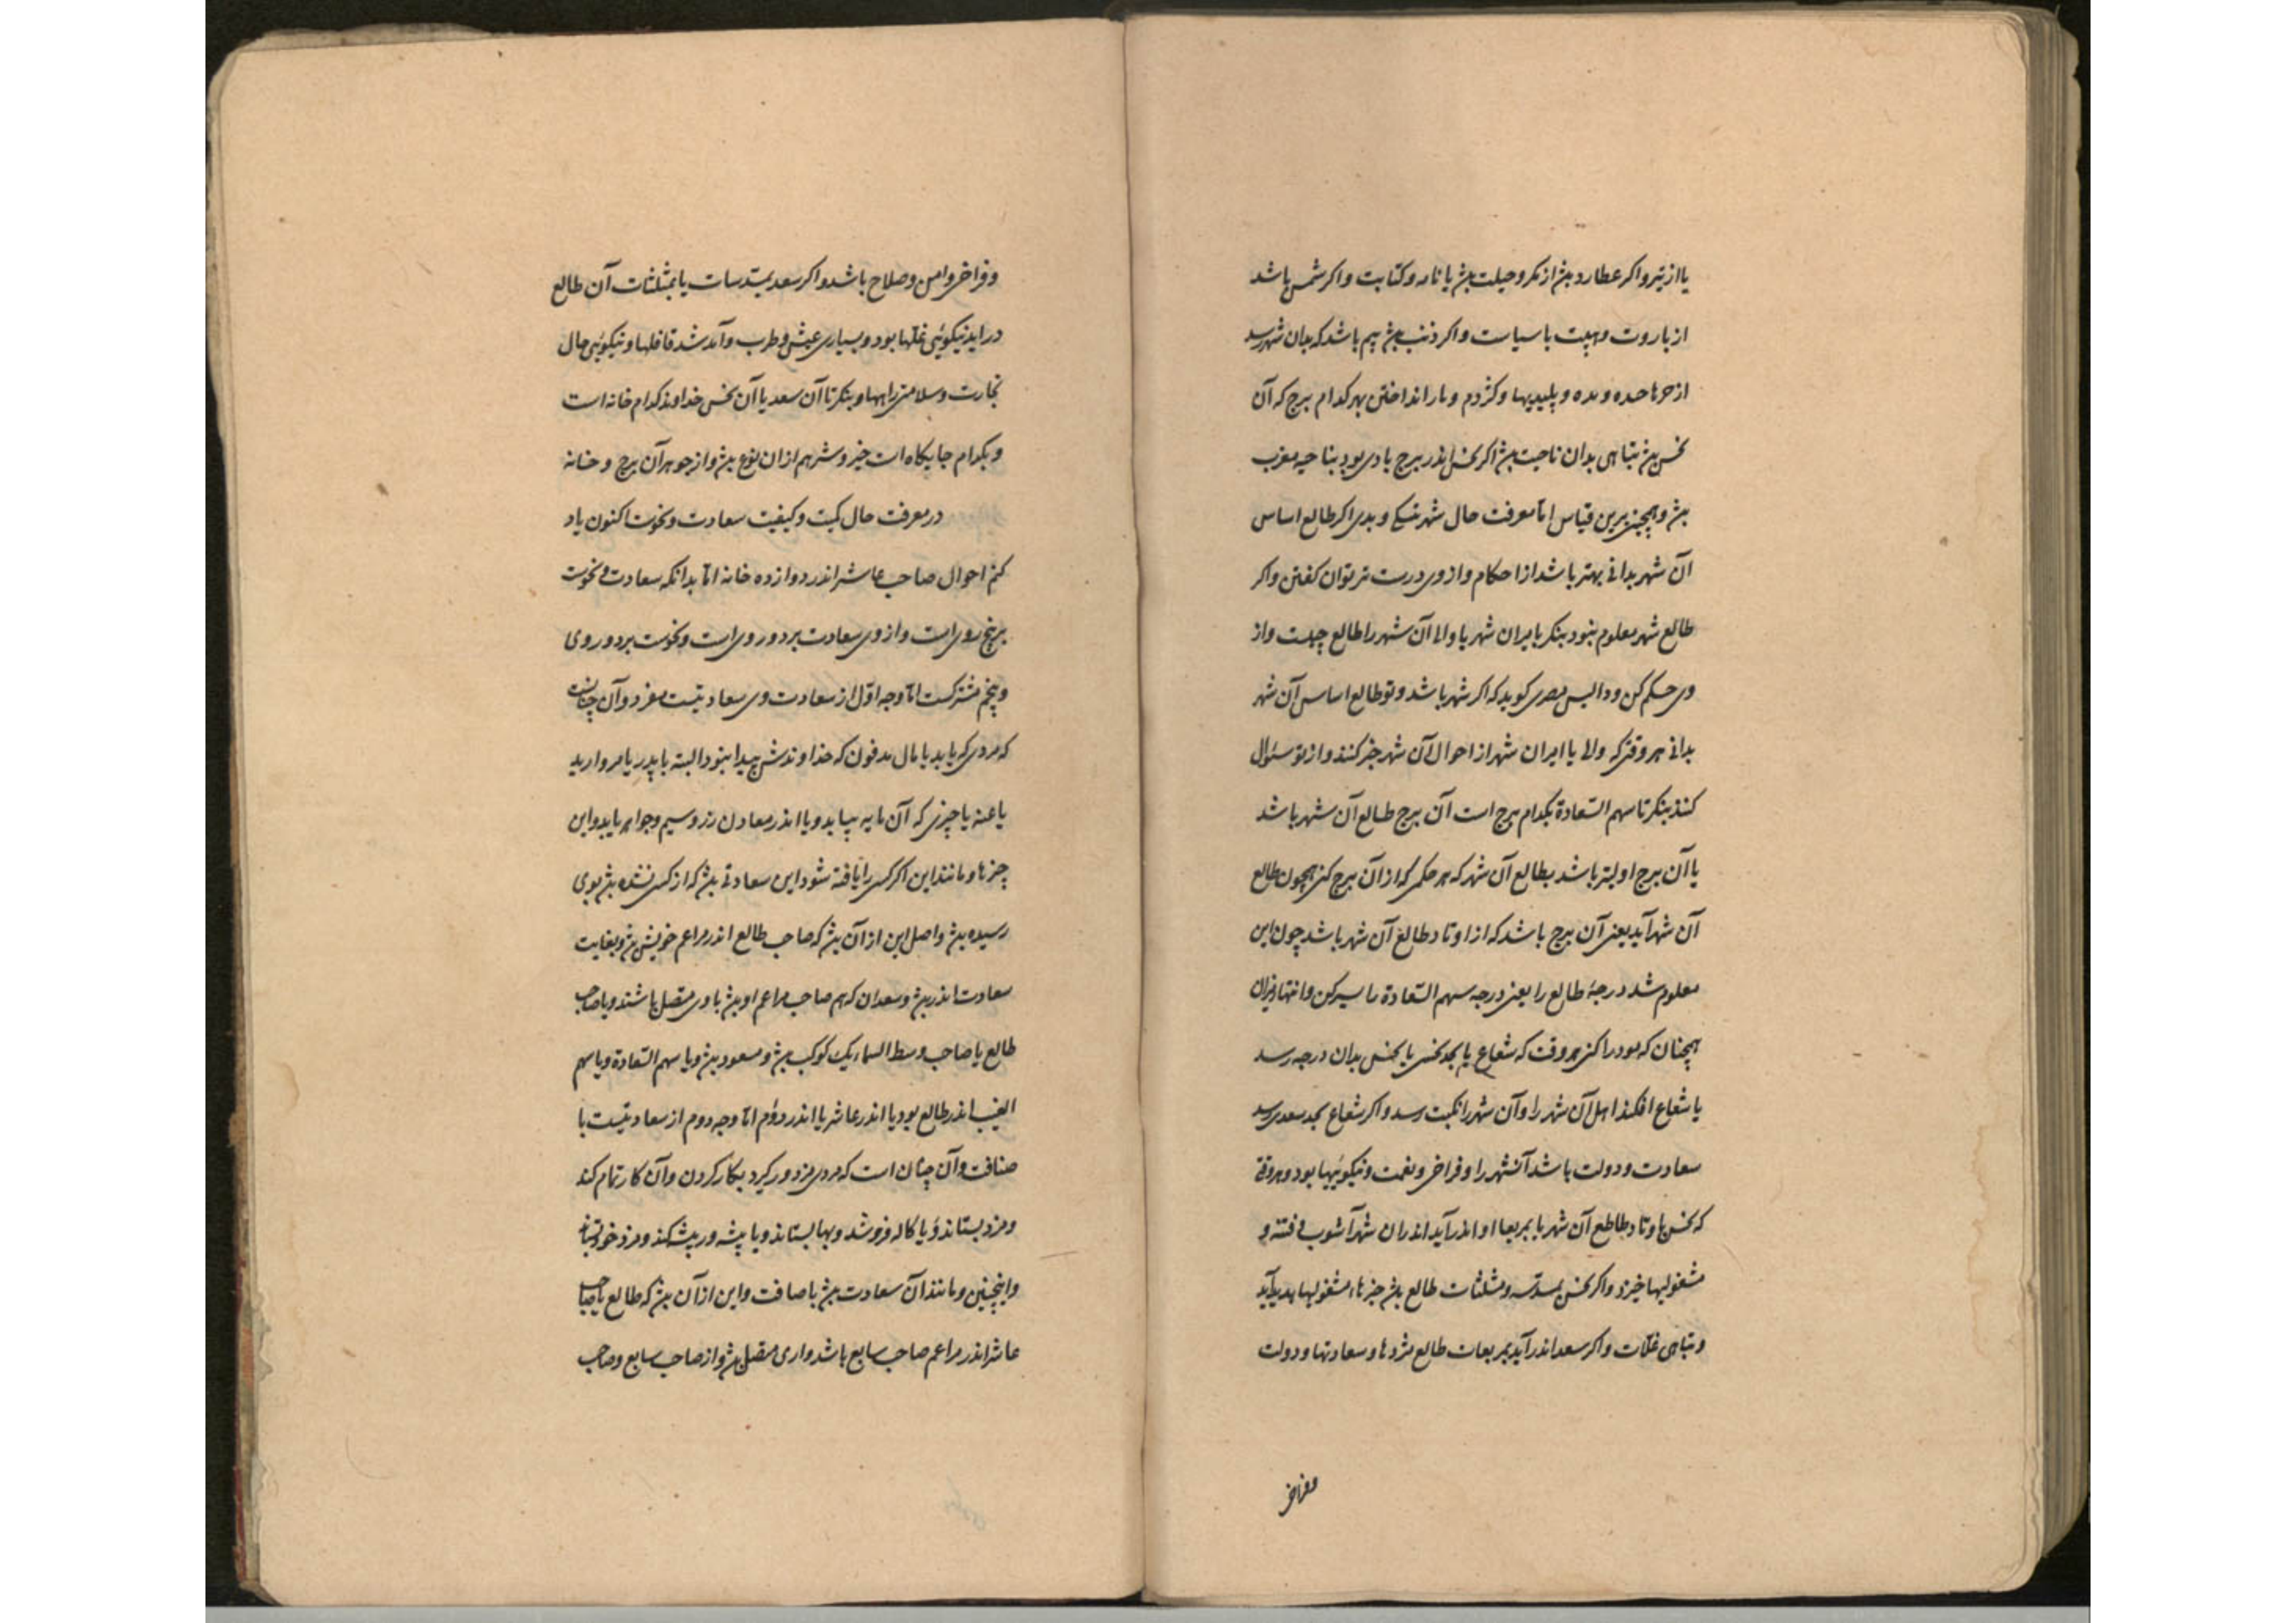 یا از تیر و اکر عطارد بیژ از مکر و حیلت بیژ یا نامه و کتابت و اکر شمس باشد
از باروت و هیبت با سیاست و اکر ذنب بیژ بیم باشد که بدان شهر رسد
از و پلیدیها و کژدم و مار انداختن بهر کدام برج که آن
نحس بیژ تباهی بدان ناحیت بیژ اکر نحس اندر برج بادی بود بناحیه مغرب
بیژ و همچنین برین قیاس اما معرفت حال شهر نیکی و بدی اکر طالع اساس
آن شهر بدانی بهتر باشد از احکام و از وی درست تر توان کفتن و اکر
طالع شهر معلوم نبود بنکر یا والی آن شهر را طالع چیست و از
وی حکم کن و والیس مصری کوید که اکر شهر باشد و تو طالع اساس آن شهر
بدانی هر وقتی که والی یا شهر از احوال آن شهر خبر کنند و از تو سئوال
کنند بنکر تا سهم السّعادة بکدام برج است آن برج طالع آن شهر باشد
یا آن برج اولیتر باشد بطالع آن شهر که هر حکمی که از آن برج کنی همچون طالع
آن شهر آید یعنی آن برج باشد که از اوتاد طالع آن شهر باشد چون این
معلوم شد درجهٔ طالع را یعنی درجه سهم السّعادة را سیر کن و انتها
همچنان که مولود را کنی هر وقت که شعاع یا بحد نحس یا نحس بدان درجه رسد
یا شعاع افکند اهل آن شهر را و آن شهر را نکبت رسد و اکر شعاع بحد سعد رسد
سعادت و دولت باشد آنشهر را و فراخی و نعمت و نیکوئیها بود و هر وقتی
که نحس باوتاد طالع آن شهر یا بمربعها او اندر آید اندران شهر آشوب و فتنه و
مشغولیها خیزد و اکر نحس بمسدّسه و مثلثات طالع بیژ مشغولیها پدید آید
و تباهی غلّات و اکر سعد اندر آید بمربعات طالع مژدها و سعادتها و دولت
وفراخی
وفراخی و امن و صلاح باشد و اکر سعد بتسدیسات یا بمثلثات آن طالع
در آید نیکوئی غلّها بود و بسیاری عیش و طرب و آمد شد قافلها و نیکوئی حال
تجارت و سلامتی راهها و بنکر تا آن سعد یا آن نحس خداوند کدام خانه است
و بکدام جایکاه است خیر و شر هم از ان نوع بیژ و از جوهر آن برج و خانه
در معرفت حال کمیت و کیفیت سعادت و نحوست اکنون یاد
کنم احوال صاحب عاشر اندر دوازده خانه امّا بدانکه سعادت و نحوست
بر پنج روی است و از وی سعادت بر دو روی است و نحوست بر دو روی
و پنجم مشترکست امّا وجه اوّل از سعادت وی سعادتیست مفرد و آن چنانست
که مردی که یابد یا مال مدفون که خداوندش پیدا نبود البته یا بدر یا مروارید
یا عنبر یا چیزی که آن مایه بیابد و یا اندر معادن زر و سیم و جواهر یابد و این
چیزها و مانند این اکر کسی را یافته شود این سعادتی بیژ که از کسی نشده بیژ بوی
رسیده بیژ و اصل این از آن بیژ که صاحب طالع اندر مزاعم خویش بیژ و بغایت
سعادت اندر بیژ و سعدان که هم صاحب مزاعم او بیژ با وی متصل باشند و یا صاحب
طالع یا صاحب وسط السماء یک کوکب بیژ و مسعود بیژ و یا سهم السّعادة و یا سهم
الغیب اندر طالع بود یا اندر عاشر یا اندر دوّم امّا وجه دوم از سعادتیست با
ضافت و آن چنان است که مردی مزدور کیرد بکار کردن و آن کار تمام کند
و مزد بستاند و یا کاله فروشد و بها بستاند و یا پیشه ور پیشه کند و مزد خود بستاند
و اینچنین و مانند آن سعادت بیژ باضافت و این از آن بیژ که طالع یا صاحب
عاشر اندر مزاعم صاحب سابع باشد و اری متصل بیژ و از صاحب سابع و صاحب